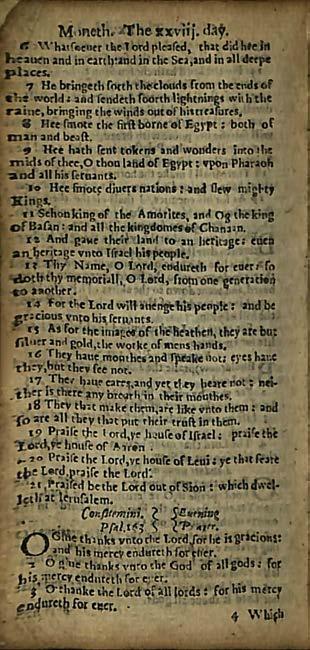 Moneth. The xxviij. day.
6 Whatsoeuer the Lord pleased, that did hee in
heauen and in earth: and in the Sea, and in all deepe
places.
7 He bringeth forth the clouds from the ends of
the world: and sendeth foorth lightnings with the
raine, bringing the winds out of his treasures.
8 Hee smote the first borne of Egypt: both of
man and beast.
9 Hee hath sent tokens and wonders into the
mids of thee, O thou land of Egypt: vpon Pharaoh
and all his seruants.
10 Hee smote diuers nations: and slew mighty
Kings.
11 Sehon king of the Amorites, and Og the king
of Basan: and all the kingdomes of Chanaan.
12 And gaue their land to an heritage: euen
an heritage vnto Israel his people.
13 Thy Name, O Lord, endureth for euer: so
doth thy memoriall, O Lord, from one generation
to another.
14 For the Lord will auenge his people: and be
gracious vnto his seruants.
15 As for the images of the heathen, they are but
siluer and gold, the worke of mens hands.
16 They haue mouthes and speake not: eyes haue
they, but they see not.
17 They haue eares, and yet they heare not: nei-
ther is there any breath in their mouthes.
18 They that make them, are like vnto them: and
so are all they that put their trust in them.
19 Praise the Lord, ye house of Israel: praise the
Lord, ye house of Aaron.
20 Praise the Lord, ye house of Leui: ye that feare
the Lord, praise the Lord.
21 Praised be the Lord out of Sion: which dwel-
leth at Ierusalem.
Confitemini. Euening
Psal. Prayer.
O Giue thanks vnto the Lord, for he is gracious:
and his mercy endureth for euer.
2 O giue thanks vnto the God of all gods: for
his mercy endureth for euer.
3 O thanke the Lord of all lords: for his mercy
endureth for euer.
4 Which